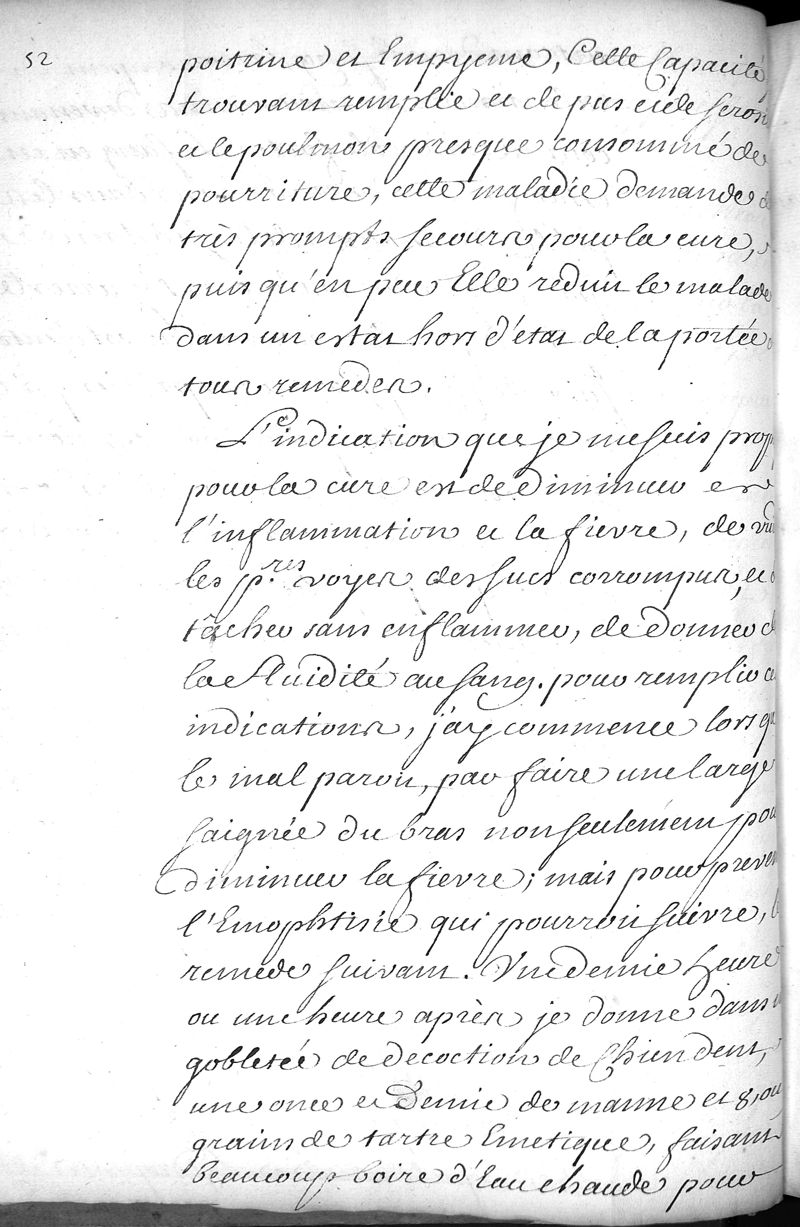 52
poitrine et Empyeme, Cette Capacité
trouvant remplie et de pus et de
et le poulmon presque consommé de
pourriture, cette maladie demande
très prompts secours pour la cure,
puis qu'en peu Elle reduit le malade
dans un estat hors d'état de la portée
tous remedes.
L'indication que je me suis
pour la cure est de diminuer et
l'inflammation et la fievre, de
les p.res voyes des sucs corrompus, et
tâcher sans enflammer, de donner
la fluidité au sang. pour remplir
indications, j'ay commencé
le mal paroit, par faire une large
saignée du bras non seulement
diminuer la fievre; mais pour
l'Emophtisie qui pourroit suivre,
remede suivant. Une demie heure
ou une heure après je donne dans
gobletée de decoction de Chiendent,
une once et demie de manne et 8, ou
grains de tartre Emetique, faisant
beaucoup boire d'Eau chaude pour